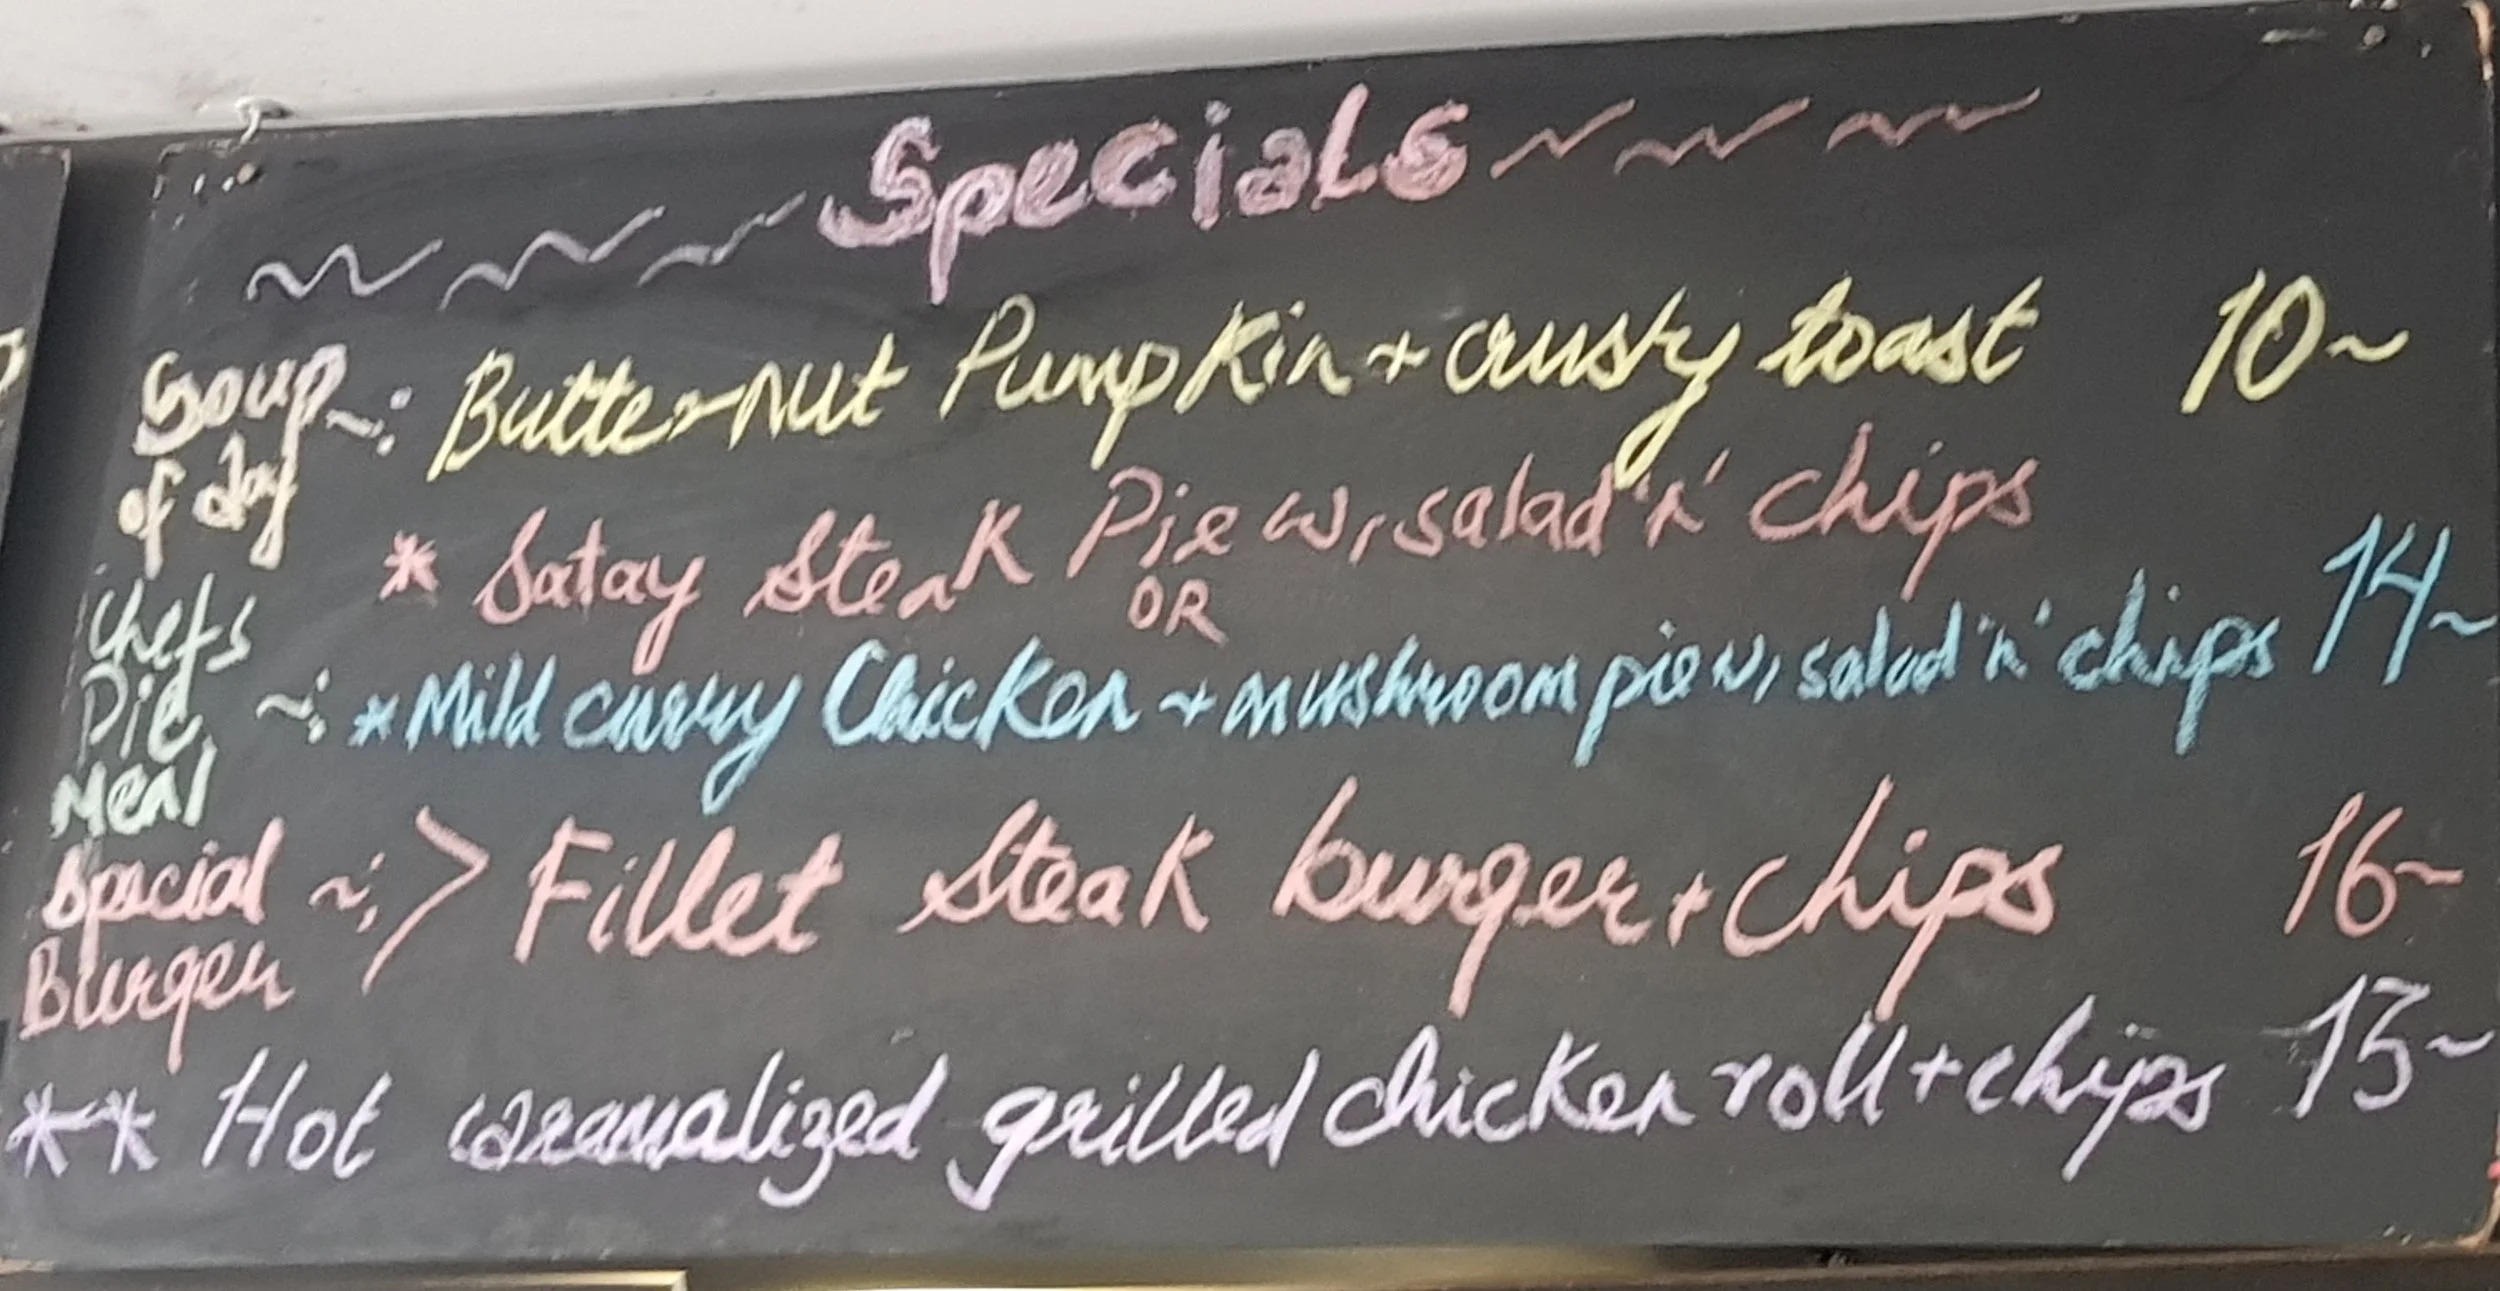 Specials
Soup of day ~: Butternut Pumpkin + crusty toast 10~
* Satay Steak Pie w, salad 'n' chips
OR
Chefs Pie Meal ~: * Mild curry Chicken + mushroom pie w, salad 'n' chips 14~
Special Burger ~: > Fillet Steak burger + chips 16~
** Hot caramalized grilled chicken roll + chips